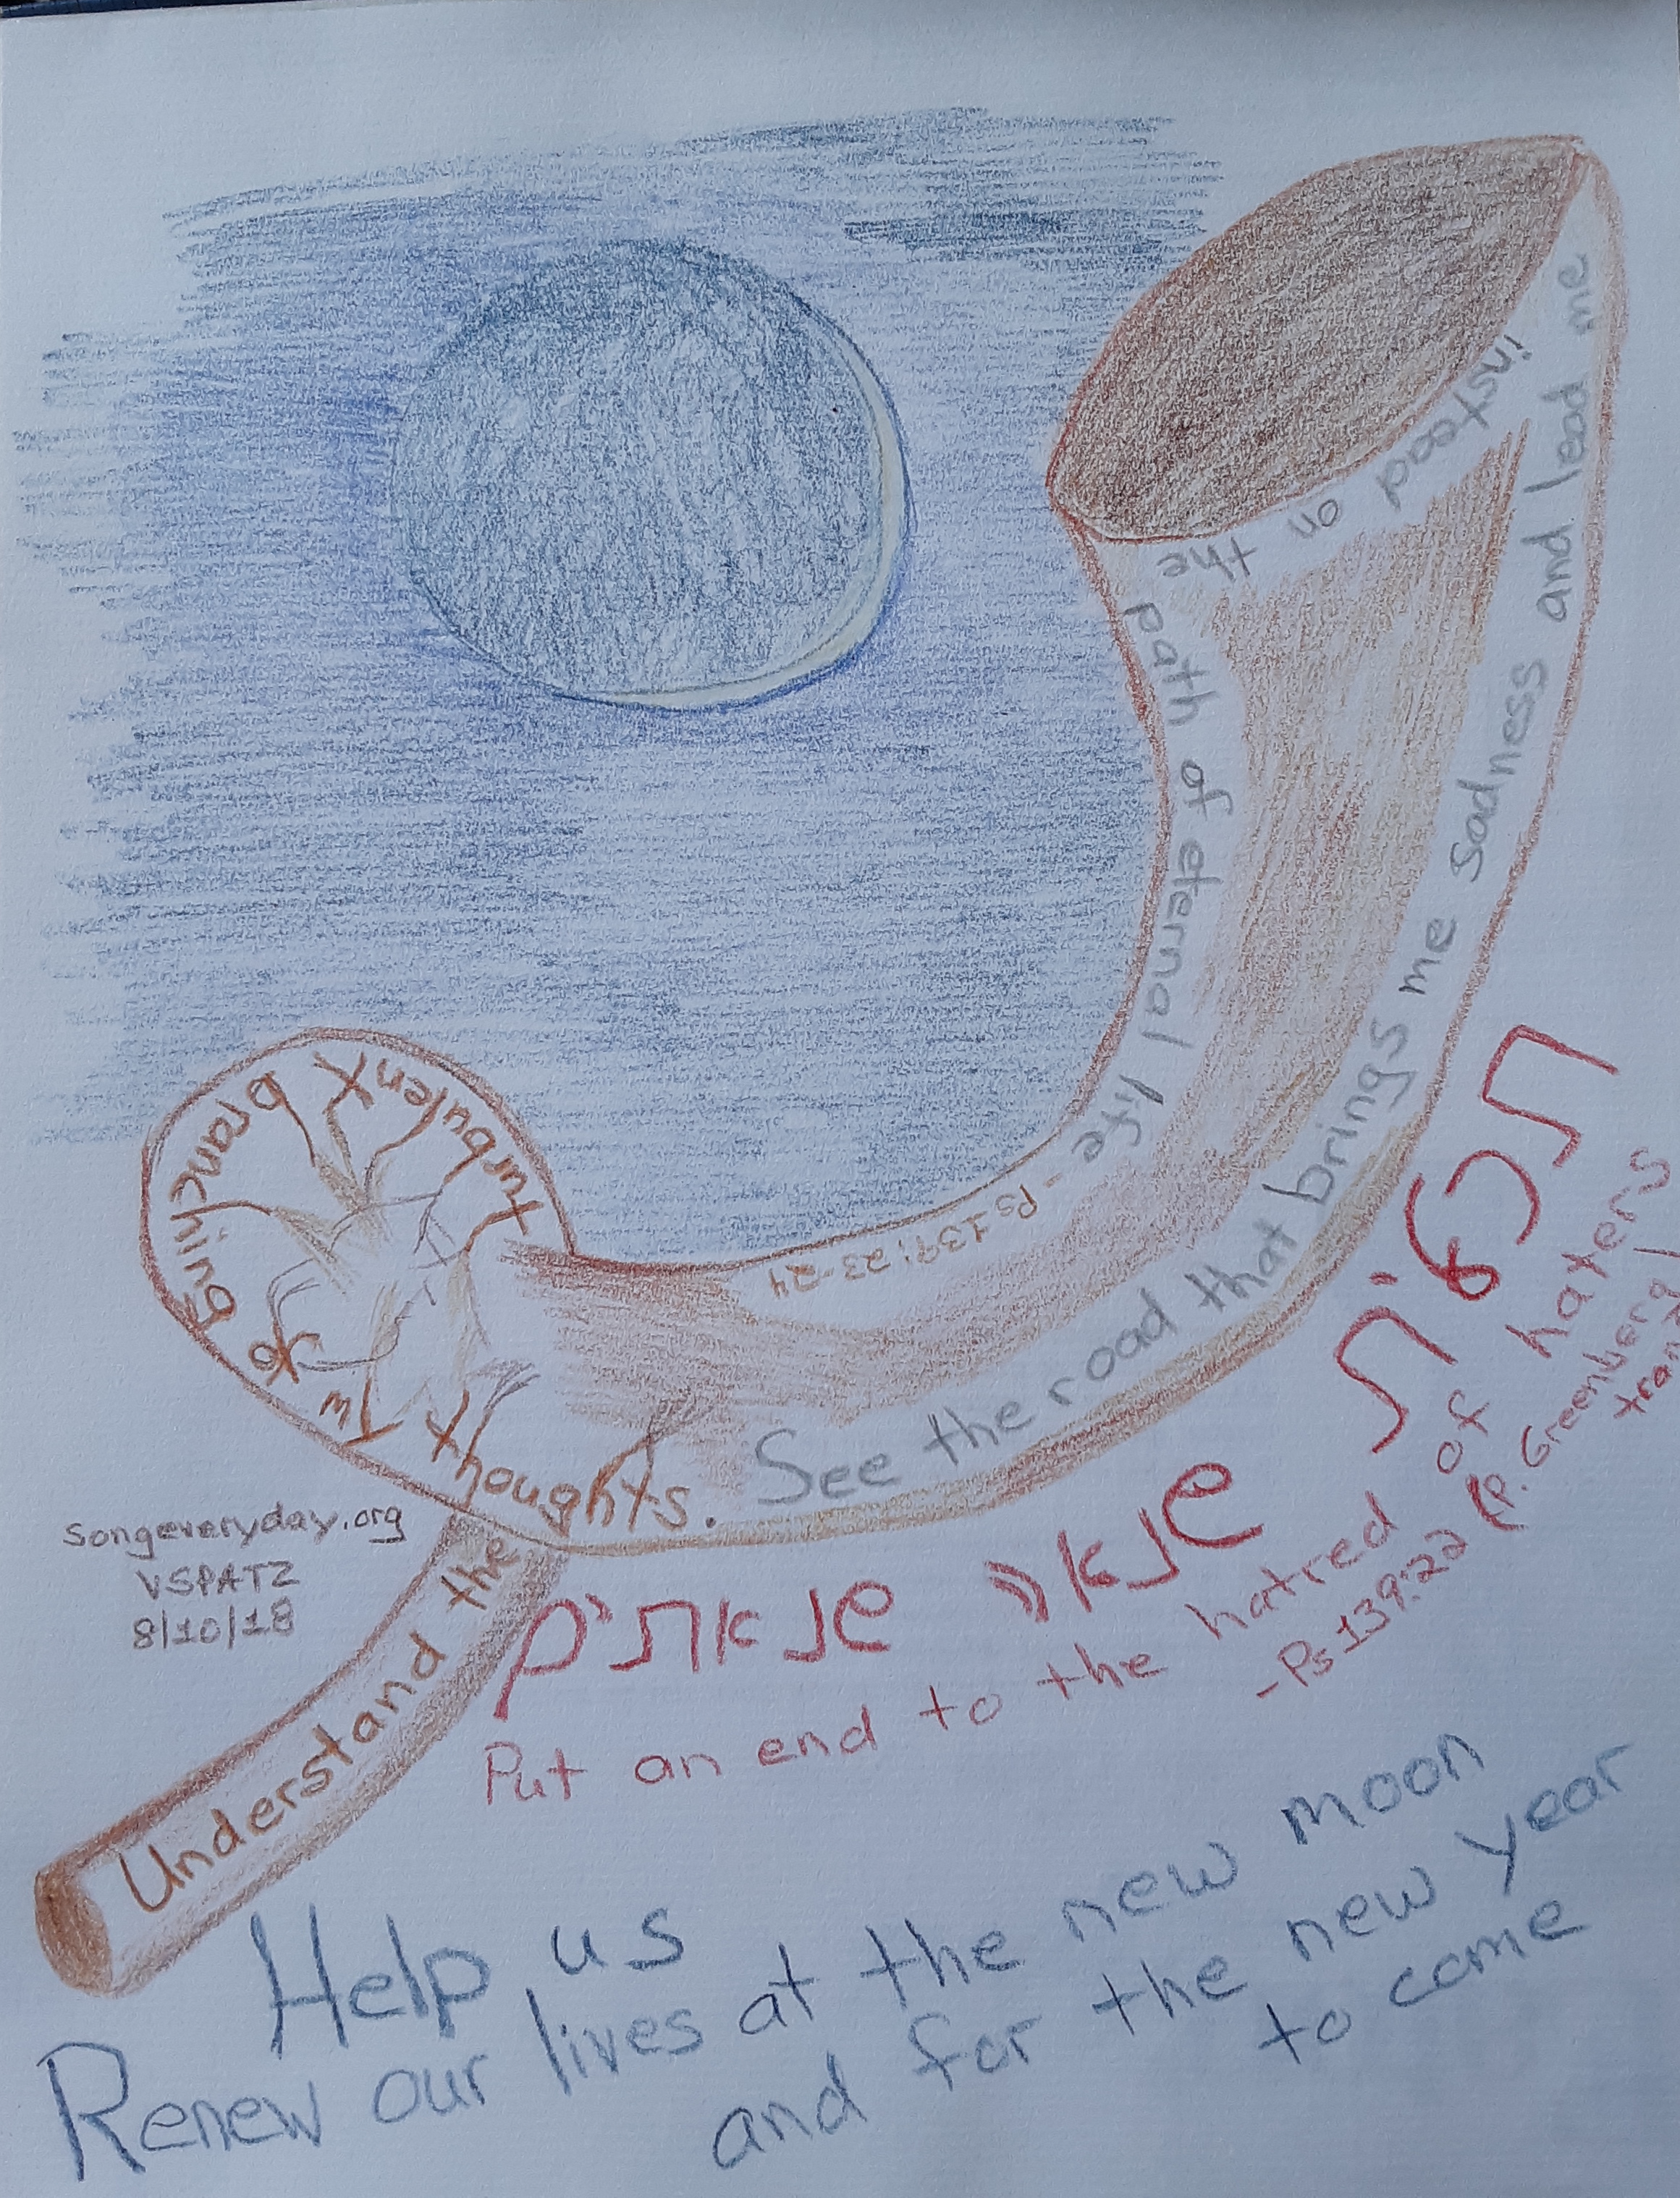 Understand the
turbulent branching of my thoughts.
See the road that brings me sadness and lead me
instead on the path of eternal life
- Ps 139:23-24
תכלית שנאה שנאתים
Put an end to the hatred of haters
- Ps 139:22 (P. Greenberg,
songeveryday.org
VSPATZ
8/10/18
Help us
Renew our lives at the new moon
and for the new year
to come